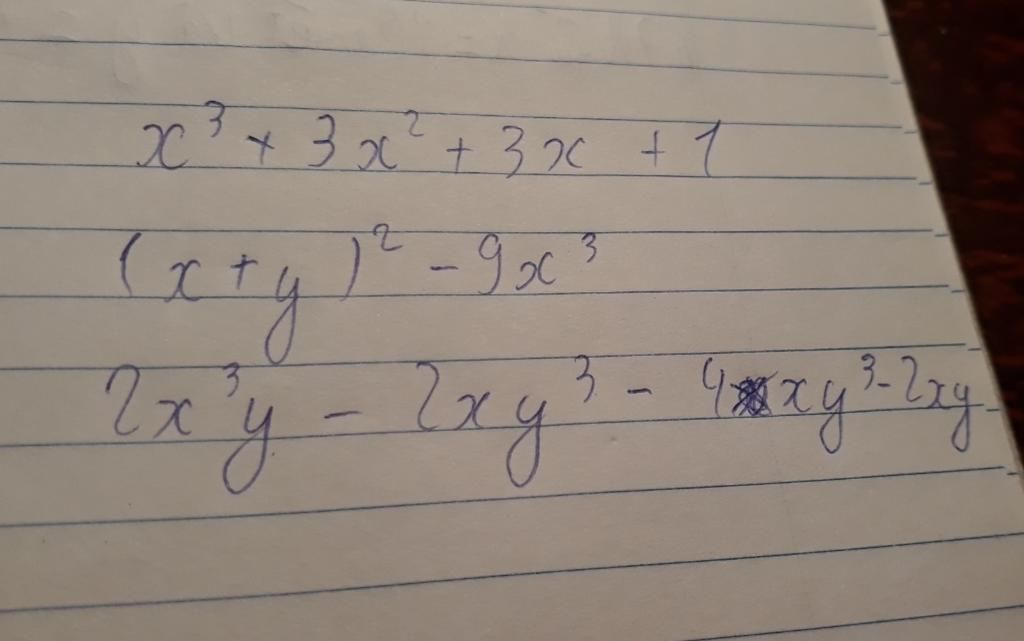 x³ + 3x² + 3x + 1
(x+y)² - 9x³
2x³y - 2xy³ - 4xy³ - 2xy